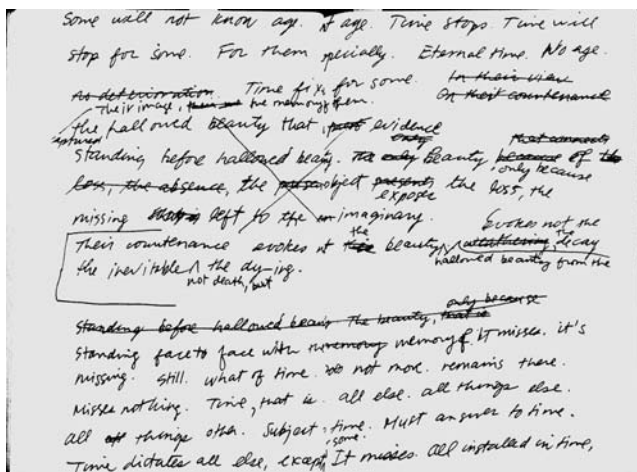 Some will not know age. Not age. Time stops. Time will
stop for some. For them specially. Eternal time. No age.
No deterioration. Time fixes for some. In their view
On their countenance
Their image, the memory of them.
captured
the hallowed beauty that evidence
Standing before hallowed beauty. only Beauty because of
only because
loss, the absence, the object presents the loss, the
expose
missing left to the imaginary.
Evokes not the
Their countenance evokes not the beauty, the decay
hallowed beauty from the
the inevitable the dy-ing.
not death, but
only because
Standing before hallowed beauty the beauty, that is
Standing face to face with memory memory. It misses. it's
missing. Still. what of time. do not move. remains there.
Misses nothing. Time, that is. all else. all things else.
all things other. Subject time. Must answer to time.
some.
Time dictates all else, except, It misses. all installed in time,